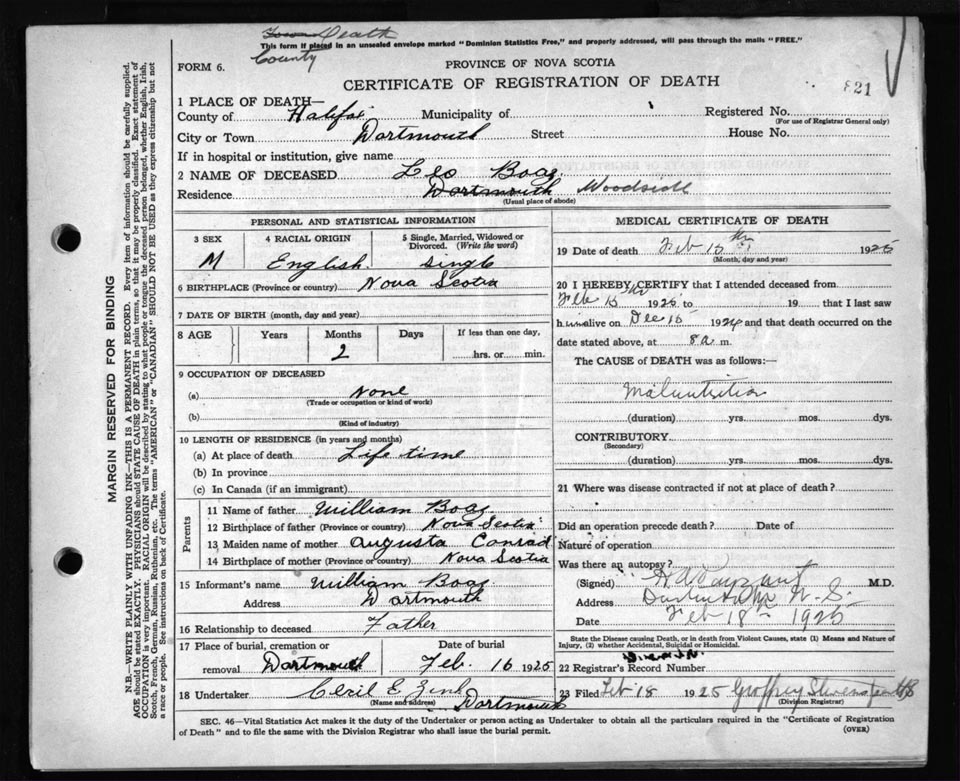 Town Death
This form if placed in an unsealed envelope marked "Dominion Statistics Free," and properly addressed, will pass through the mails "FREE."
County
FORM 6.
PROVINCE OF NOVA SCOTIA
CERTIFICATE OF REGISTRATION OF DEATH
821
1 PLACE OF DEATH—
County of Halifax Municipality of Registered No.
(For use of Registrar General only)
City or Town Dartmouth Street House No.
If in hospital or institution, give name
2 NAME OF DECEASED Leo Boag.
Residence Dartmouth Woodside
(Usual place of abode)
PERSONAL AND STATISTICAL INFORMATION
3 SEX 4 RACIAL ORIGIN 5 Single, Married, Widowed or Divorced. (Write the word)
M English. Single
6 BIRTHPLACE (Province or country) Nova Scotia
7 DATE OF BIRTH (month, day and year)
8 AGE Years Months Days If less than one day,
2 hrs. or min.
9 OCCUPATION OF DECEASED
(a) None
(Trade or occupation or kind of work)
(b)
(Kind of industry)
10 LENGTH OF RESIDENCE (in years and months)
(a) At place of death Life time
(b) In province
(c) In Canada (if an immigrant)
Parents
11 Name of father William Boag
12 Birthplace of father (Province or country) Nova Scotia
13 Maiden name of mother Augusta Conrad
14 Birthplace of mother (Province or country) Nova Scotia
15 Informant's name William Boag
Address Dartmouth
16 Relationship to deceased Father
17 Place of burial, cremation or Date of burial
removal Dartmouth Feb. 16 1925
18 Undertaker Cecil E. Zink
(Name and address) Dartmouth
MEDICAL CERTIFICATE OF DEATH
19 Date of death Feb 15th 1925
(Month, day and year)
20 I HEREBY CERTIFY that I attended deceased from
Feb 15 1925 to 19 that I last saw
him alive on Dec 15 1924 and that death occurred on the
date stated above, at 8 a m.
The CAUSE of DEATH was as follows:—
Malnutrition
(duration) yrs. mos. dys.
CONTRIBUTORY
(Secondary)
(duration) yrs. mos. dys.
21 Where was disease contracted if not at place of death?
Did an operation precede death? Date of
Nature of operation
Was there an autopsy?
(Signed) H A Payzant M.D.
Address Dartmouth N. S.
Date Feb 18th 1925
State the Disease causing Death, or in death from Violent Causes, state (1) Means and Nature of Injury, (2) whether Accidental, Suicidal or Homicidal.
22 Registrar's Record Number
23 Filed Feb 18 1925 Geoffrey Stevens
(Division Registrar)
SEC. 46—Vital Statistics Act makes it the duty of the Undertaker or person acting as Undertaker to obtain all the particulars required in the "Certificate of Registration
of Death" and to file the same with the Division Registrar who shall issue the burial permit.
(OVER)
MARGIN RESERVED FOR BINDING
N.B.—WRITE PLAINLY WITH UNFADING INK—THIS IS A PERMANENT RECORD. Every item of information should be carefully supplied.
AGE should be stated EXACTLY. PHYSICIANS should STATE CAUSE OF DEATH in plain terms, so that it may be properly classified. Exact statement of
OCCUPATION is very important. RACIAL ORIGIN will be described by stating to what people or tongue the deceased person belonged, whether English, Irish,
Scotch, French, German, Russian, Ruthenian, etc. The terms "AMERICAN" or "CANADIAN" SHOULD NOT BE USED as they express citizenship but not
a race or people. See instructions on back of Certificate.